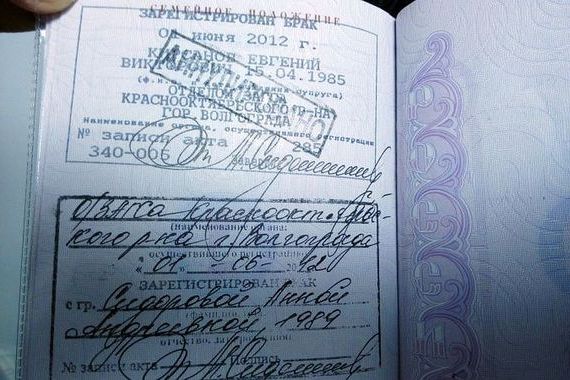 СЕМЕЙНОЕ ПОЛОЖЕНИЕ
ЗАРЕГИСТРИРОВАН БРАК
ИЮНЯ 2012 г.
ЕВГЕНИЙ
15.04.1985
супруга)
КРАСНООКТЯБРЬСКОГО Р-НА
ГОР. ВОЛГОГРАДА
Наименование органа, осуществившего регистрацию
№ записи акта 285
340-006
ОЗАГСа Краснооктябрьс-
кого р-на г. Волгограда
осуществившего регистрацию
"01" - 06 - 2012
ЗАРЕГИСТРИРОВАН БРАК
с гр. Сидоровой Анной
Андреевной, 1989
№ записи акта
Подпись